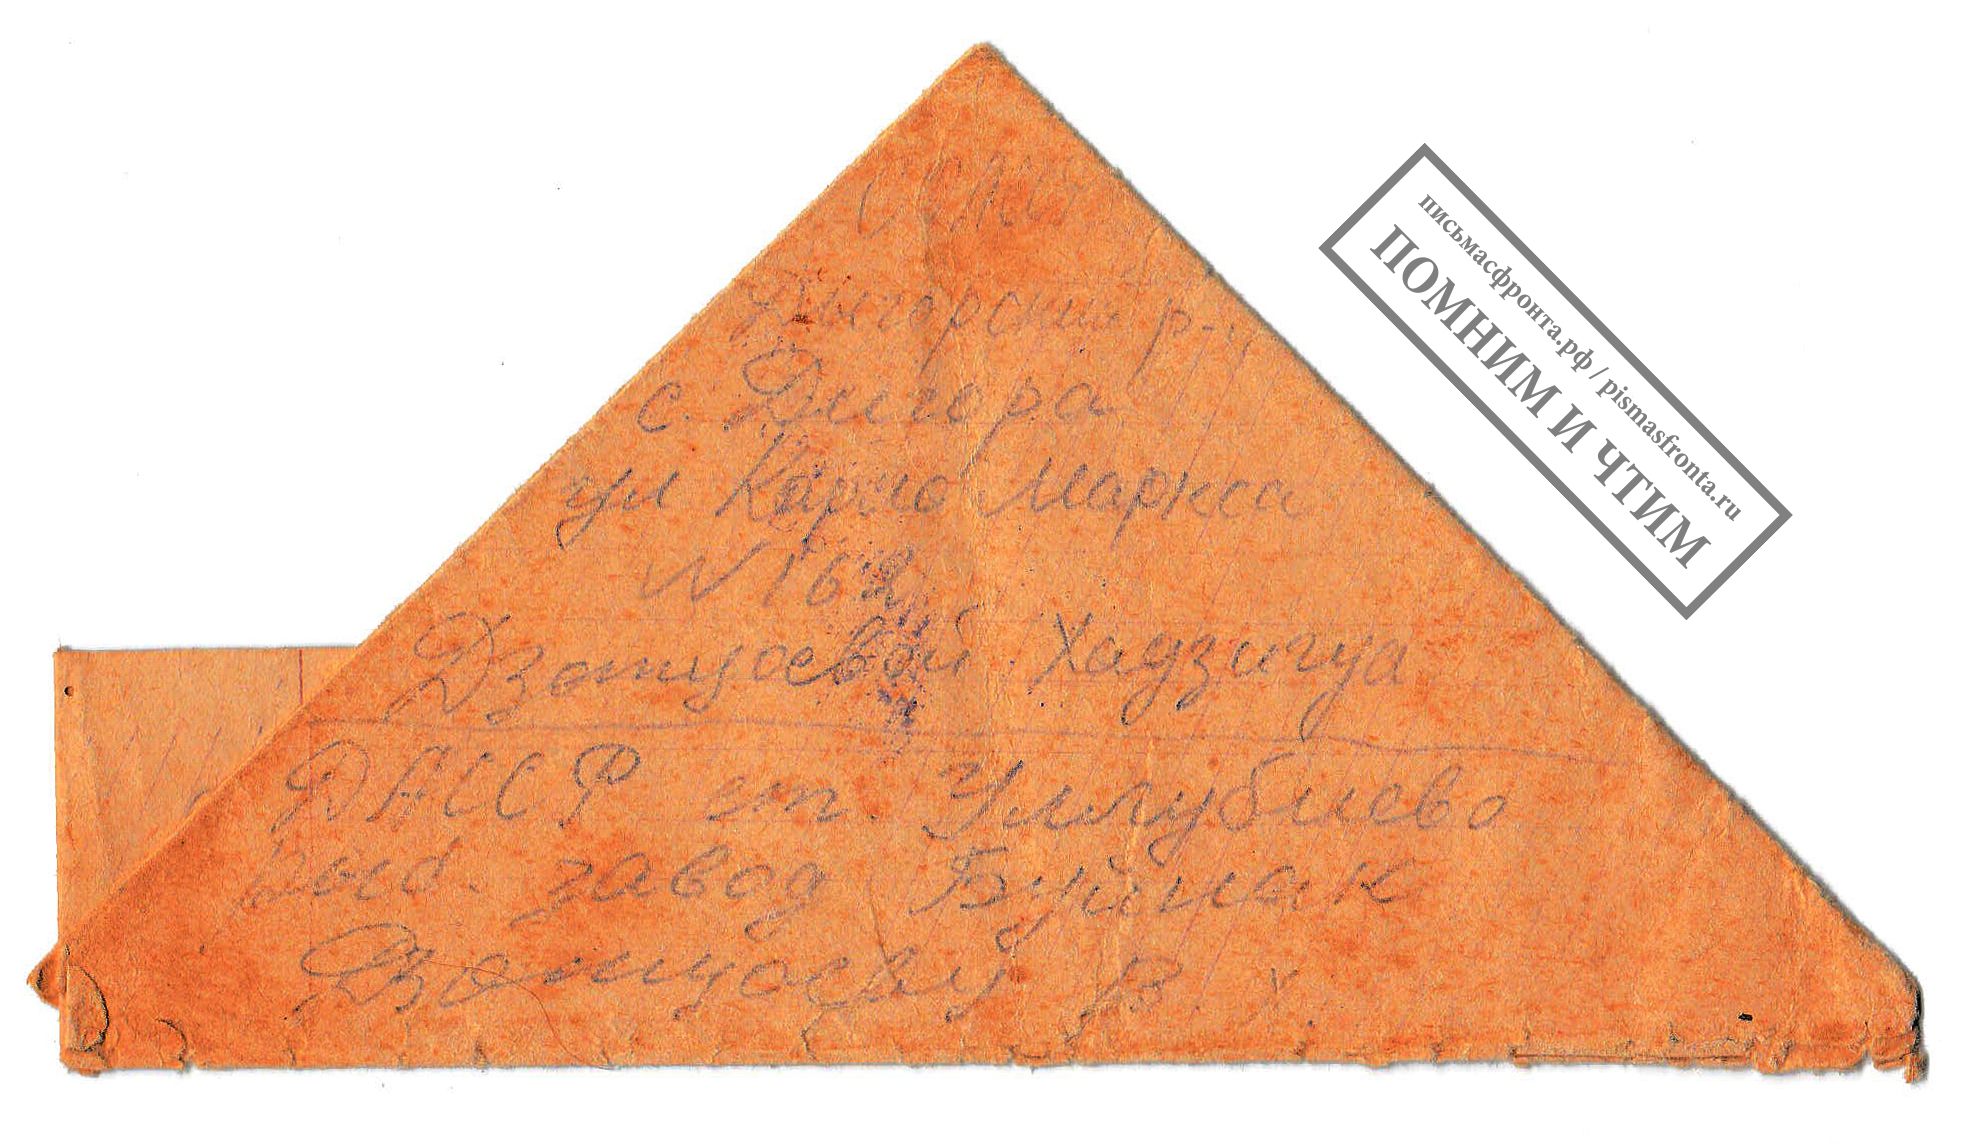 СОАССР
Дигорский р-н
с. Дигора
ул Карло Маркса
N 162
Дзотцоевой Хадзигуа
ДАССР ст. Уллубиево
рыб. завод Буйнак
Дзотцоеву В. Х.
письмасфронта.рф / pismasfronta.ru
ПОМНИМ И ЧТИМ